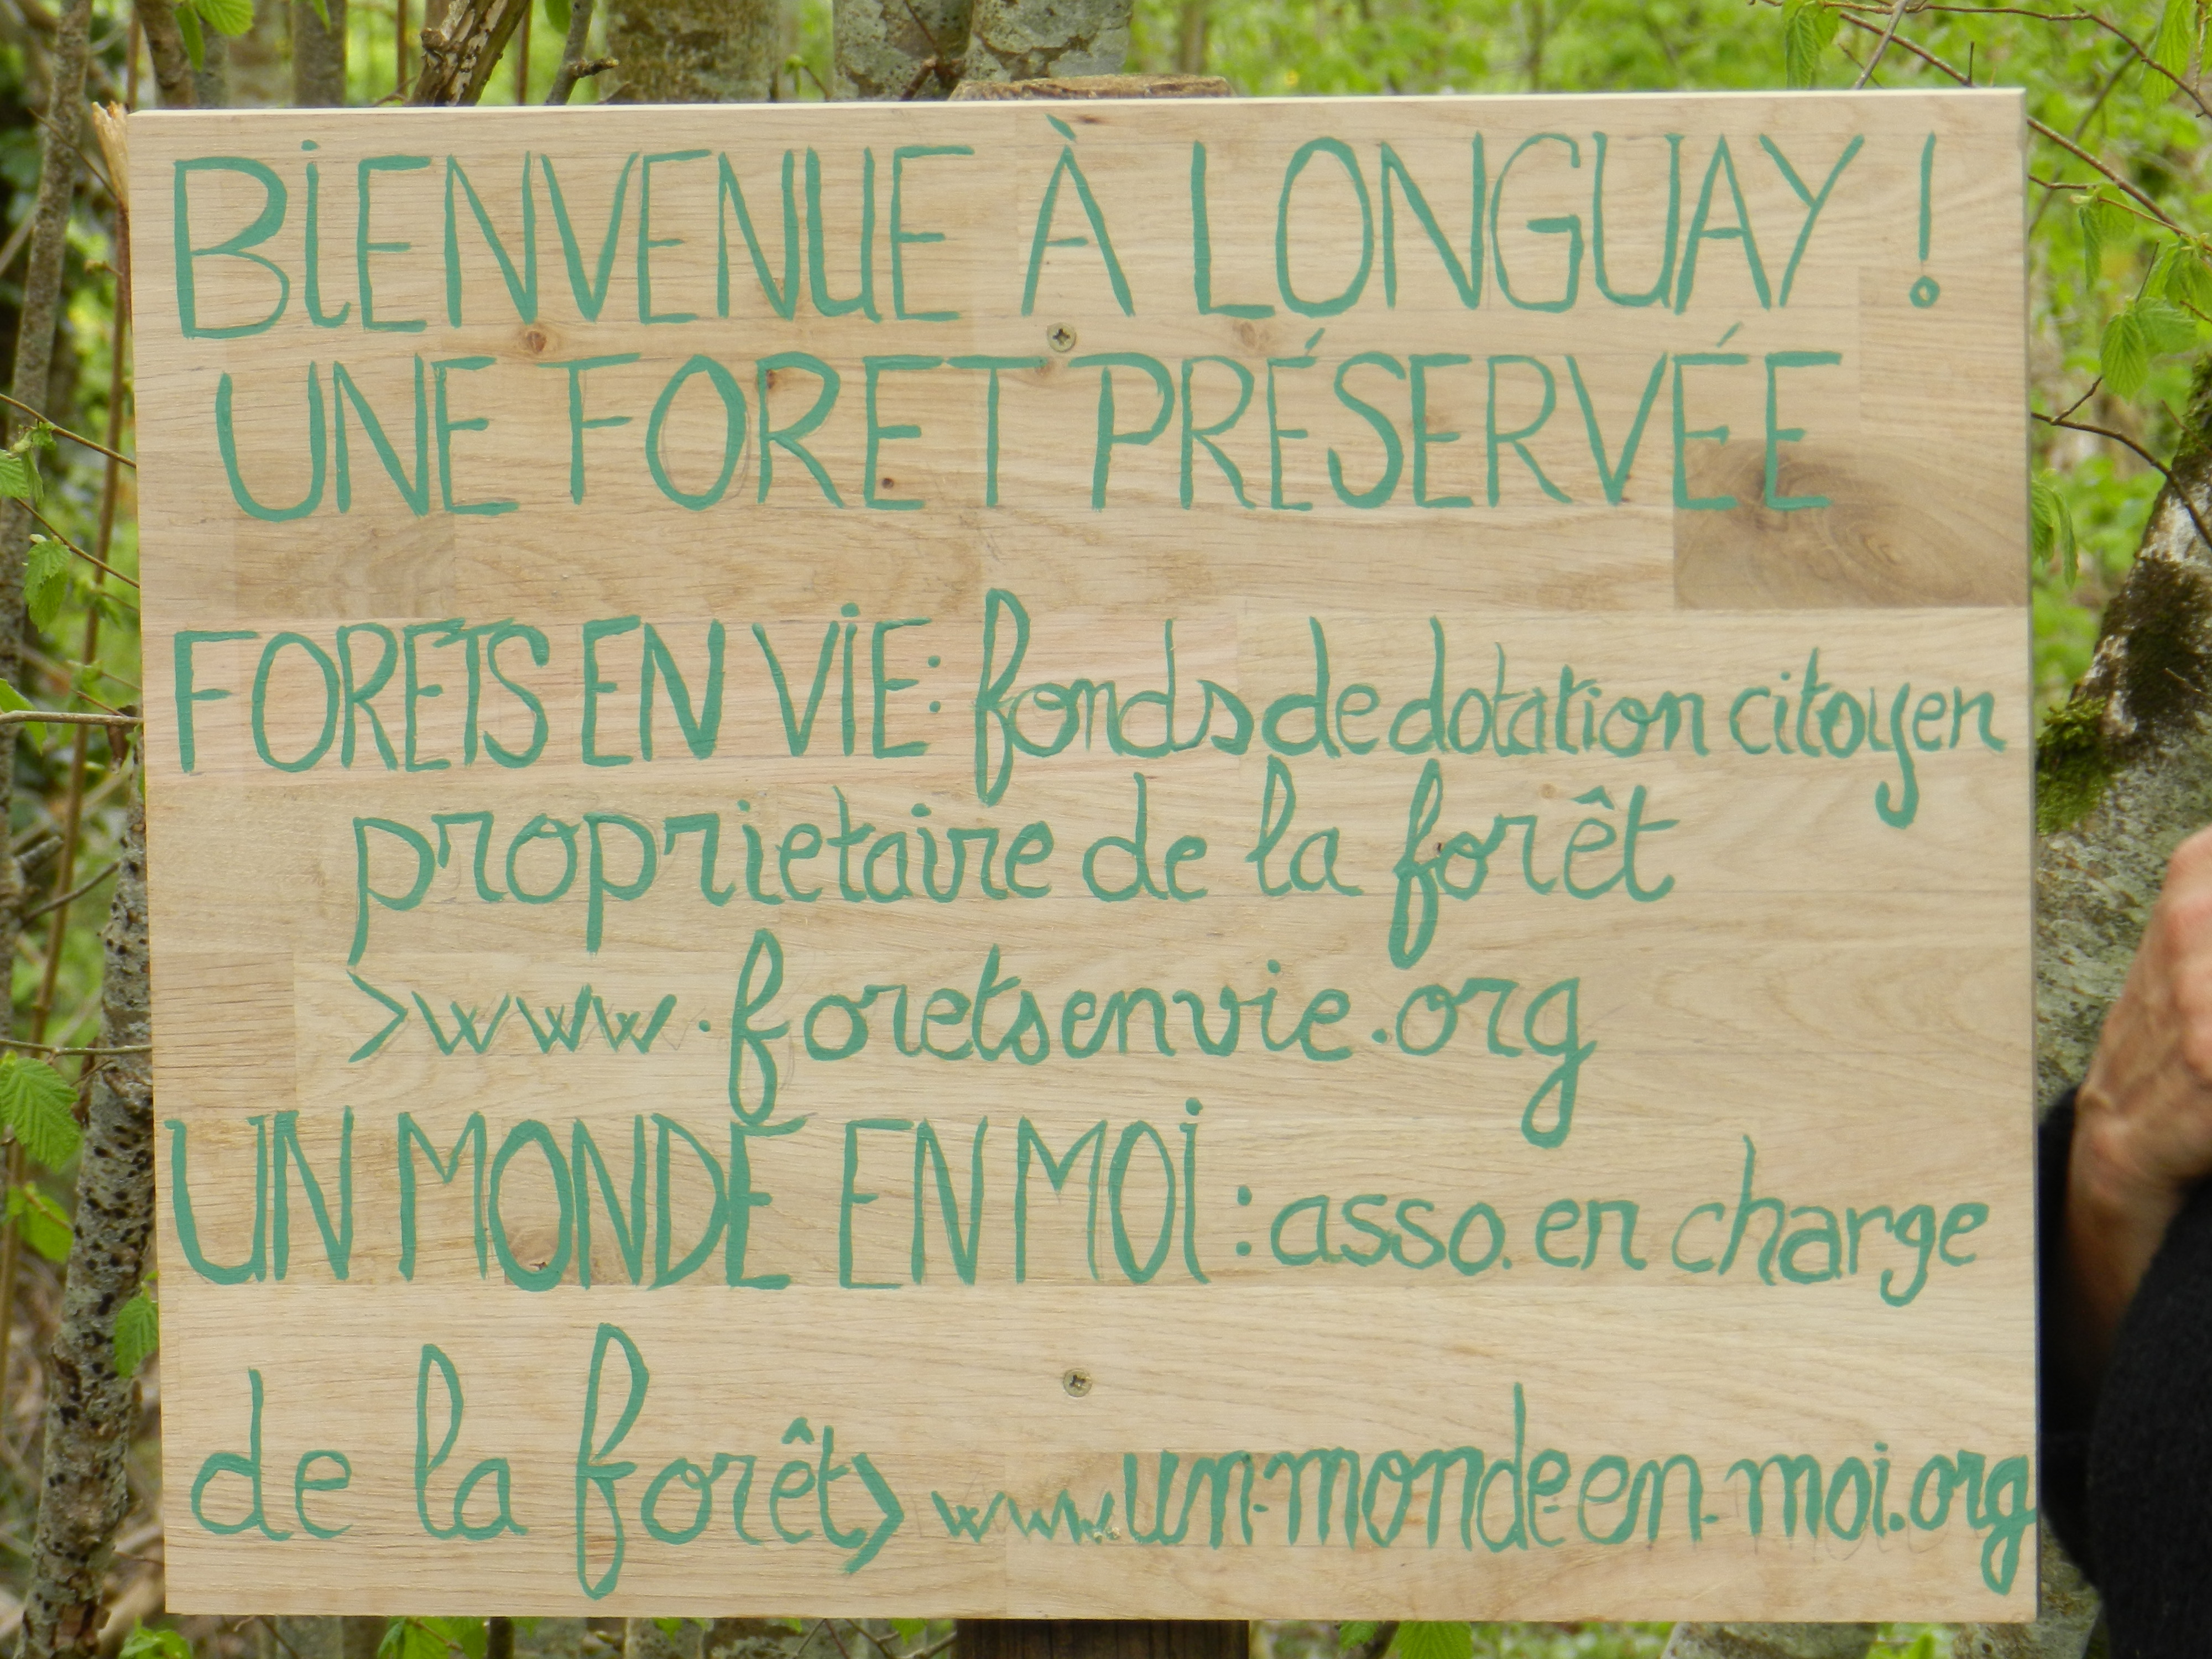 BiENVENUE À LONGUAY !
UNE FORET PRÉSERVÉE
FORETS EN ViE: fonds de dotation citoyen
proprietaire de la forêt
>www.foretsenvie.org
UN MONDE EN MOi : asso. en charge
de la forêt> www.un-monde-en-moi.org